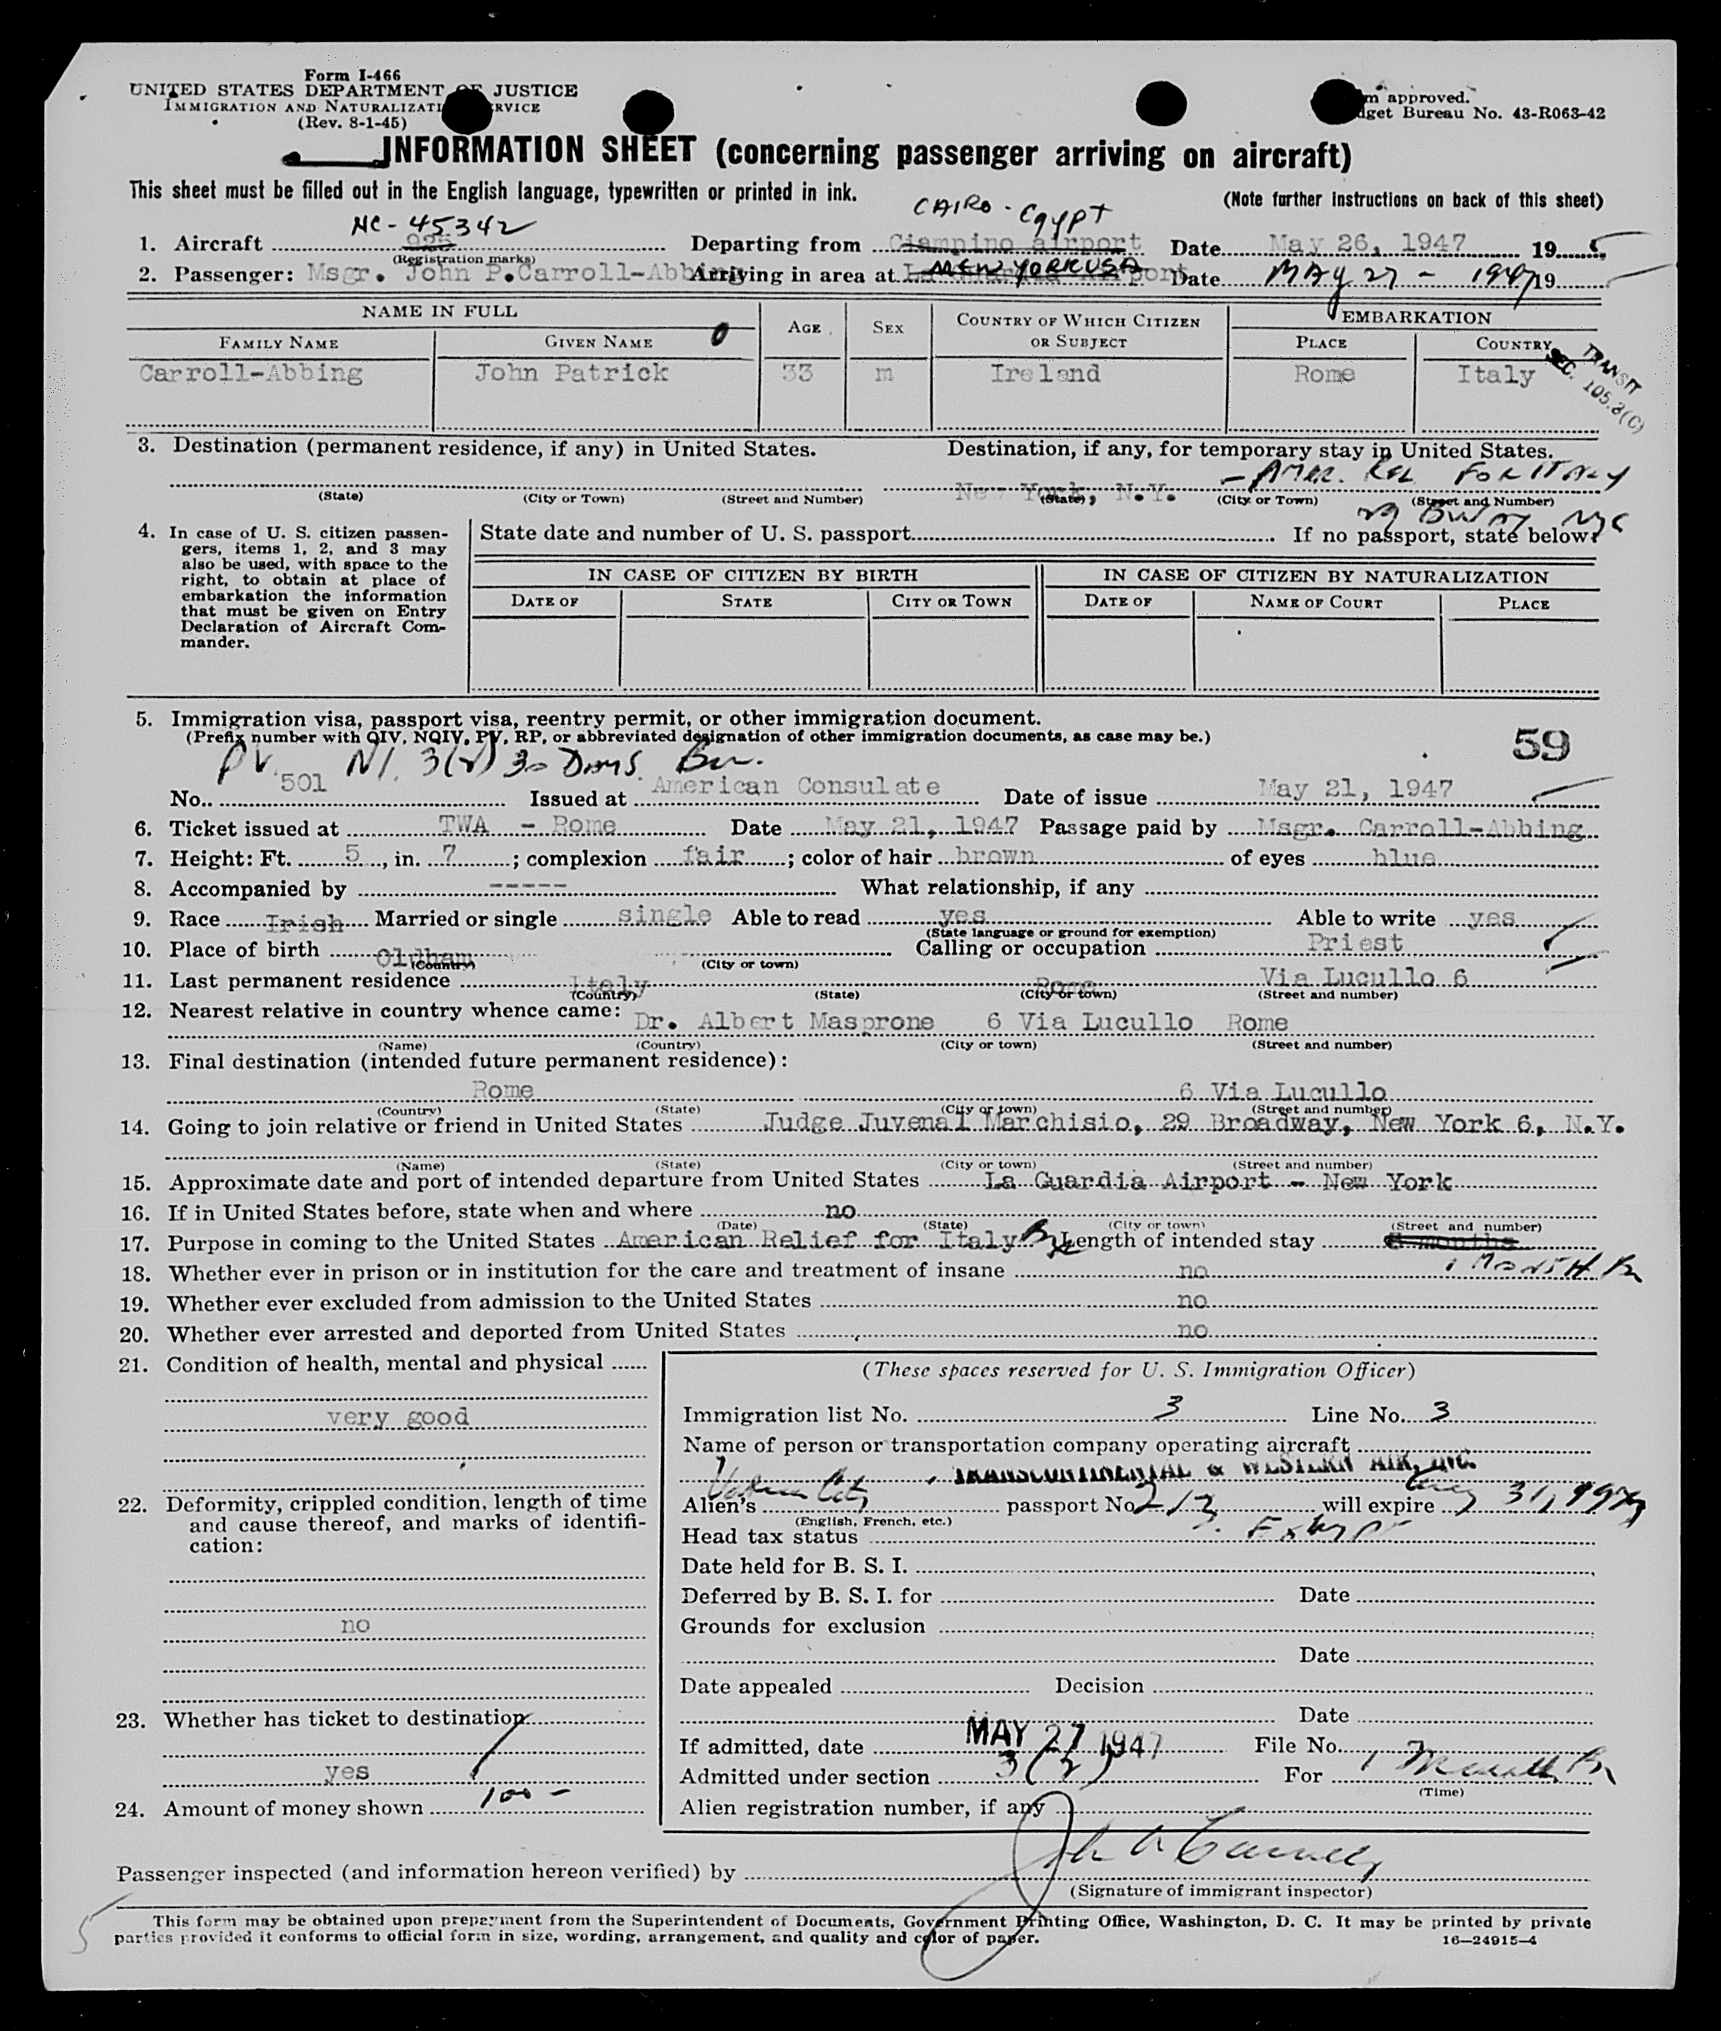 Form I-466
UNITED STATES DEPARTMENT OF JUSTICE
IMMIGRATION AND NATURALIZATION SERVICE
(Rev. 8-1-45)
approved.
Bureau No. 43-R063-42
INFORMATION SHEET (concerning passenger arriving on aircraft)
This sheet must be filled out in the English language, typewritten or printed in ink.
(Note further instructions on back of this sheet)
CAIRO - EgypT
NC-45342
1. Aircraft 925 Departing from Ciampino airport Date May 26, 1947 19
(Registration marks)
2. Passenger: Msgr. John P.Carroll-Abbing Arriving in area at NEW YORK USA Date MAy 27 - 1947 19
NAME IN FULL
AGE SEX COUNTRY OF WHICH CITIZEN OR SUBJECT EMBARKATION
FAMILY NAME GIVEN NAME PLACE COUNTRY
TRANSIT
SEC. 105.3(C)
Carroll-Abbing John Patrick 33 m Ireland Rome Italy
3. Destination (permanent residence, if any) in United States. Destination, if any, for temporary stay in United States.
New York, N.Y. - AMER. REL FOR ITALY
(State) (City or Town) (Street and Number) (State) (City or Town) (Street and Number)
29 BWay NYC
4. In case of U. S. citizen passen-
gers, items 1, 2, and 3 may
also be used, with space to the
right, to obtain at place of
embarkation the information
that must be given on Entry
Declaration of Aircraft Com-
mander.
State date and number of U. S. passport If no passport, state below:
IN CASE OF CITIZEN BY BIRTH IN CASE OF CITIZEN BY NATURALIZATION
DATE OF STATE CITY OR TOWN DATE OF NAME OF COURT PLACE
5. Immigration visa, passport visa, reentry permit, or other immigration document.
(Prefix number with QIV, NQIV, PV, RP, or abbreviated designation of other immigration documents, as case may be.)
59
PV. NI. 3(2) 30 DAYS
No. 501 Issued at American Consulate Date of issue May 21, 1947
6. Ticket issued at TWA - Rome Date May 21, 1947 Passage paid by Msgr. Carroll-Abbing
7. Height: Ft. 5, in. 7; complexion fair; color of hair brown of eyes blue
8. Accompanied by ----- What relationship, if any
9. Race Irish Married or single single Able to read yes Able to write yes
(State language or ground for exemption)
10. Place of birth Oldham Calling or occupation Priest
(Country) (City or town)
11. Last permanent residence Italy Rome Via Lucullo 6
(Country) (State) (City or town) (Street and number)
12. Nearest relative in country whence came: Dr. Albert Masprone 6 Via Lucullo Rome
(Name) (Country) (City or town) (Street and number)
13. Final destination (intended future permanent residence):
Rome 6 Via Lucullo
(Country) (State) (City or town) (Street and number)
14. Going to join relative or friend in United States Judge Juvenal Marchisio, 29 Broadway, New York 6, N.Y.
(Name) (State) (City or town) (Street and number)
15. Approximate date and port of intended departure from United States La Guardia Airport - New York
16. If in United States before, state when and where no
(Date) (State) (City or town) (Street and number)
17. Purpose in coming to the United States American Relief for Italy Length of intended stay
1 MONTH
18. Whether ever in prison or in institution for the care and treatment of insane no
19. Whether ever excluded from admission to the United States no
20. Whether ever arrested and deported from United States no
21. Condition of health, mental and physical
very good
22. Deformity, crippled condition, length of time
and cause thereof, and marks of identifi-
cation:
no
23. Whether has ticket to destination
yes
24. Amount of money shown 100 -
(These spaces reserved for U. S. Immigration Officer)
Immigration list No. 3 Line No. 3
Name of person or transportation company operating aircraft
TRANSCONTINENTAL & WESTERN AIR, INC.
Alien's Vatican City passport No 213 will expire 31, 1947
(English, French, etc.)
Head tax status Exempt
Date held for B. S. I.
Deferred by B. S. I. for Date
Grounds for exclusion
Date
Date appealed Decision
Date
If admitted, date MAY 27 1947 File No.
Admitted under section 3(2) For 1 Month
(Time)
Alien registration number, if any
Passenger inspected (and information hereon verified) by
(Signature of immigrant inspector)
This form may be obtained upon prepayment from the Superintendent of Documents, Government Printing Office, Washington, D. C. It may be printed by private
parties provided it conforms to official form in size, wording, arrangement, and quality and color of paper.
16—24915-4
5